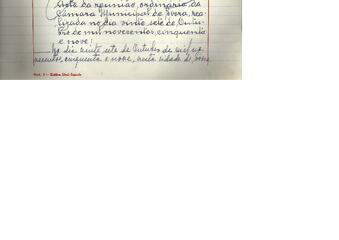 Acta da reunião, ordinária, da
Câmara Municipal de Évora, rea-
lizada no dia vinte sete de Outu-
bro de mil novecentos, cinquenta
e nove:
No dia vinte sete de Outubro de mil no
vecentos, cinquenta e nove, nesta cidade de Évora
Mod. 5 — Gráfica